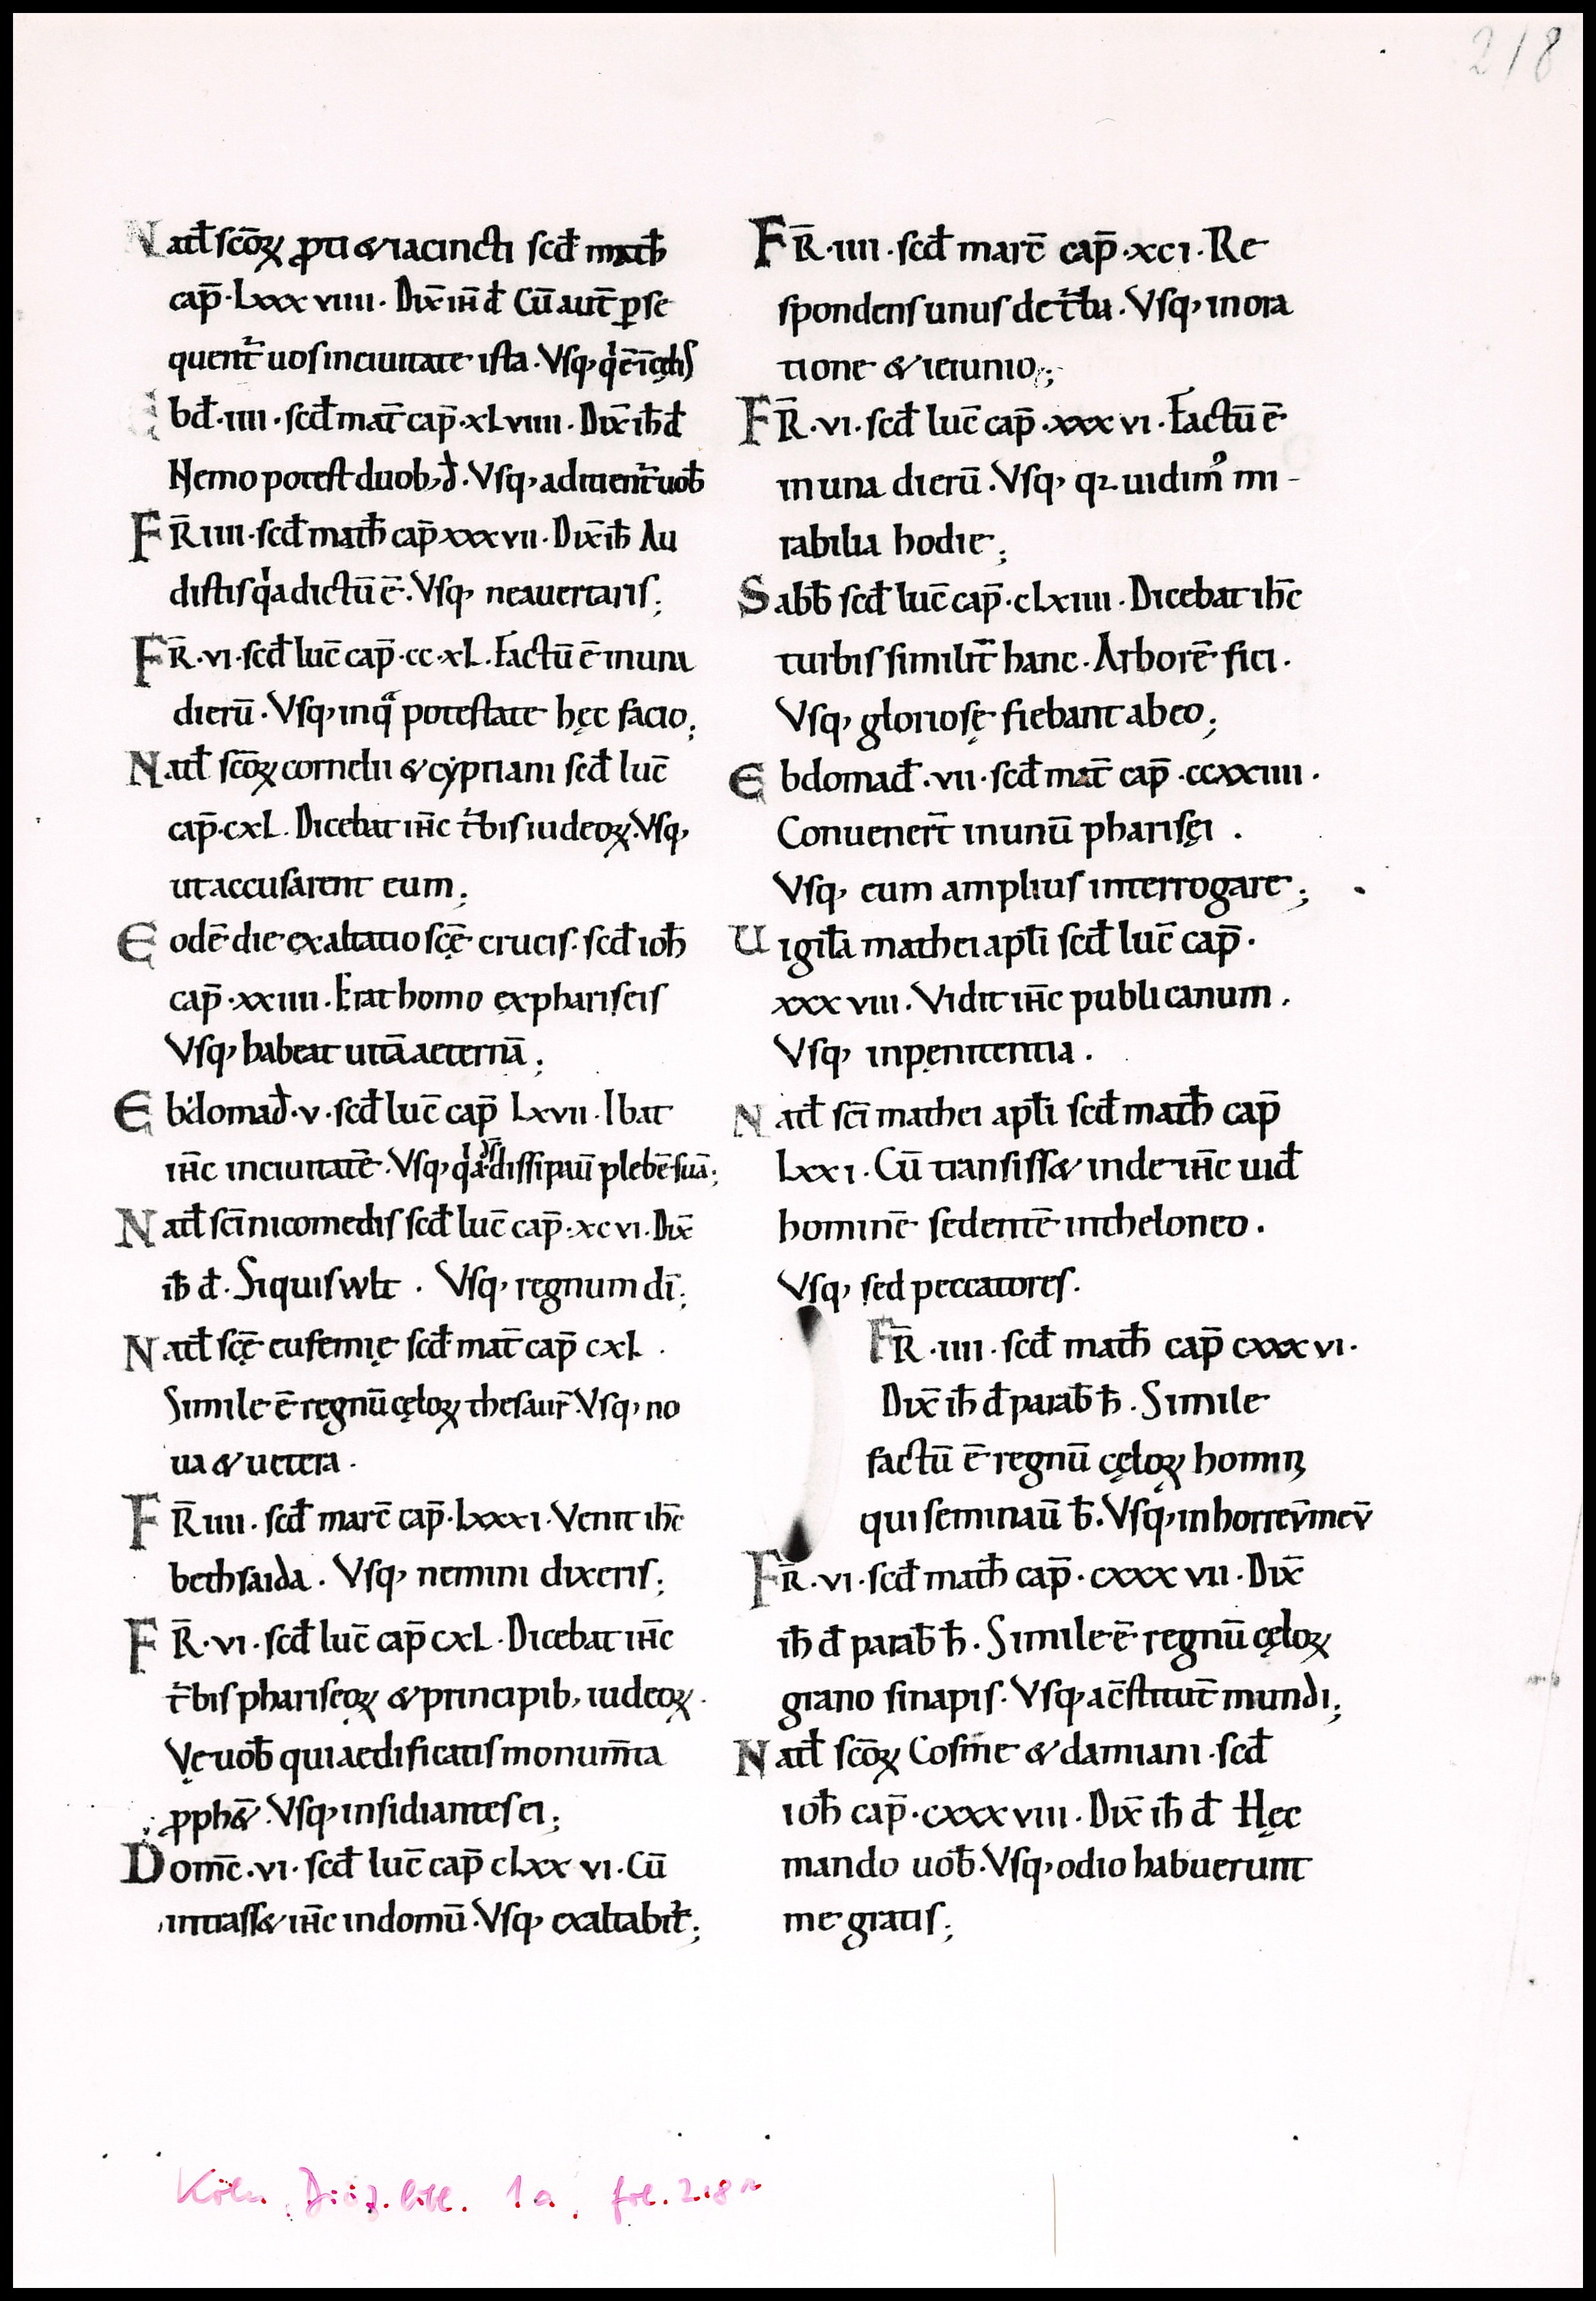 218
Natł scōꝝ ꝓti & iacincti scđ math̄
cap̄ · Lxxx viiii · Dix̄ ih̄ đ Cū aut̄ ꝑse
quent᷑ uos in ciuitate ista · Vsq;
Ebđ · iiii · scđ mat̄ cap̄ · xLviiii · Dix̄ ih̄ đ
Nemo potest duob; đ · Vsq; adiicient᷑ uob̄
FR̄ iiii · scđ math̄ cap̄ xxxvii · Dix̄ ih̄ Au
distis qa dictū ē · Vsq; ne auertaris ;
FR̄ · vi · scđ luc̄ cap̄ · cc · xL · Factū ē in una
dierū · Vsq; in qͣ potestate hęc facio ;
Natł scōꝝ cornelii & cẏpriani scđ luc̄
cap̄ · cxL · Dicebat ih̄c t᷑bis iudeoꝝ · Vsq;
ut accusarent eum ;
Eodē die exaltatio scę̄ crucis · scđ ioh̄
cap̄ · xxiiii · Erat homo ex phariseis
Vsq; habeat uitā aeternā ;
Ebdomađ · v · scđ luc̄ cap̄ Lxvii · Ibat
ih̄c in ciuitatē · Vsq; plebē suā ;
Natł scī nicomedis scđ luc̄ cap̄ · xcvi · Dix̄
ih̄ đ · Siquis vvlt · Vsq; regnum dī ;
Natł scę̄ eufemię scđ mat̄ cap̄ cxL ·
Simile ē regnū cęloꝝ thesaur̄ · Vsq; no
ua & uetera ·
FR̄ iiii · scđ marc̄ cap̄ · Lxxxi · Venit ih̄c
bethsaida · Vsq; nemini dixeris ;
FR̄ · vi · scđ luc̄ cap̄ cxL · Dicebat ih̄c
t᷑bis phariseoꝝ & principib; iudeoꝝ ·
Vę uob̄ qui aedificatis monum̄ta
ꝓph&̄ · Vsq; insidiantes ei ;
Dom̄c · vi · scđ luc̄ cap̄ cLxx vi · Cū
intrass& ih̄c in domū · Vsq; exaltabit᷑ ;
FR̄ · iiii · scđ marc̄ cap̄ · xci · Re
spondens unus de t᷑ba · Vsq; in ora
tione & ieiunio ;
FR̄ · vi · scđ luc̄ cap̄ · xxx vi · Factū ē
in una dierū · Vsq; qꝛ uidimꝰ mi-
rabilia hodie ;
Sabb̄ scđ luc̄ cap̄ · cLxiiii · Dicebat ih̄c
turbis similit᷑ hanc · Arborē fici ·
Vsq; gloriosę fiebant ab eo ;
Ebdomađ · vii · scđ mat̄ cap̄ · ccxxiiii ·
Conuener̄t in unū pharisęi ·
Vsq; eum amplius interrogare ;
Uigiła mathei apłi scđ luc̄ cap̄ ·
xxx viii · Vidit ih̄c publicanum ·
Vsq; in pęnitentia ·
Natł scī mathei apłi scđ math̄ cap̄
Lxxi · Cū transiss& inde ih̄c uiđ
hominē sedentē in theloneo ·
Vsq; sed peccatores ·
FR̄ · iiii · scđ math̄ cap̄ cxxx vi ·
Dix̄ ih̄ đ parab̄ h̄ · Simile
factū ē regnū cęloꝝ homin
qui seminaū b̄ · Vsq; in horreū meū
FR̄ · vi · scđ math̄ cap̄ · cxxx vii · Dix̄
ih̄ đ parab̄ h̄ · Simile ē regnū cęloꝝ
grano sinapis · Vsq; a c̄stitut̄ mundi ;
Natł scōꝝ Cosme & damiani · scđ
ioh̄ cap̄ · cxxx viii · Dix̄ ih̄ đ Hęc
mando uob̄ · Vsq; odio habuerunt
me gratis ;
Köln, Diöz. bibl. 1a, fol. 218r